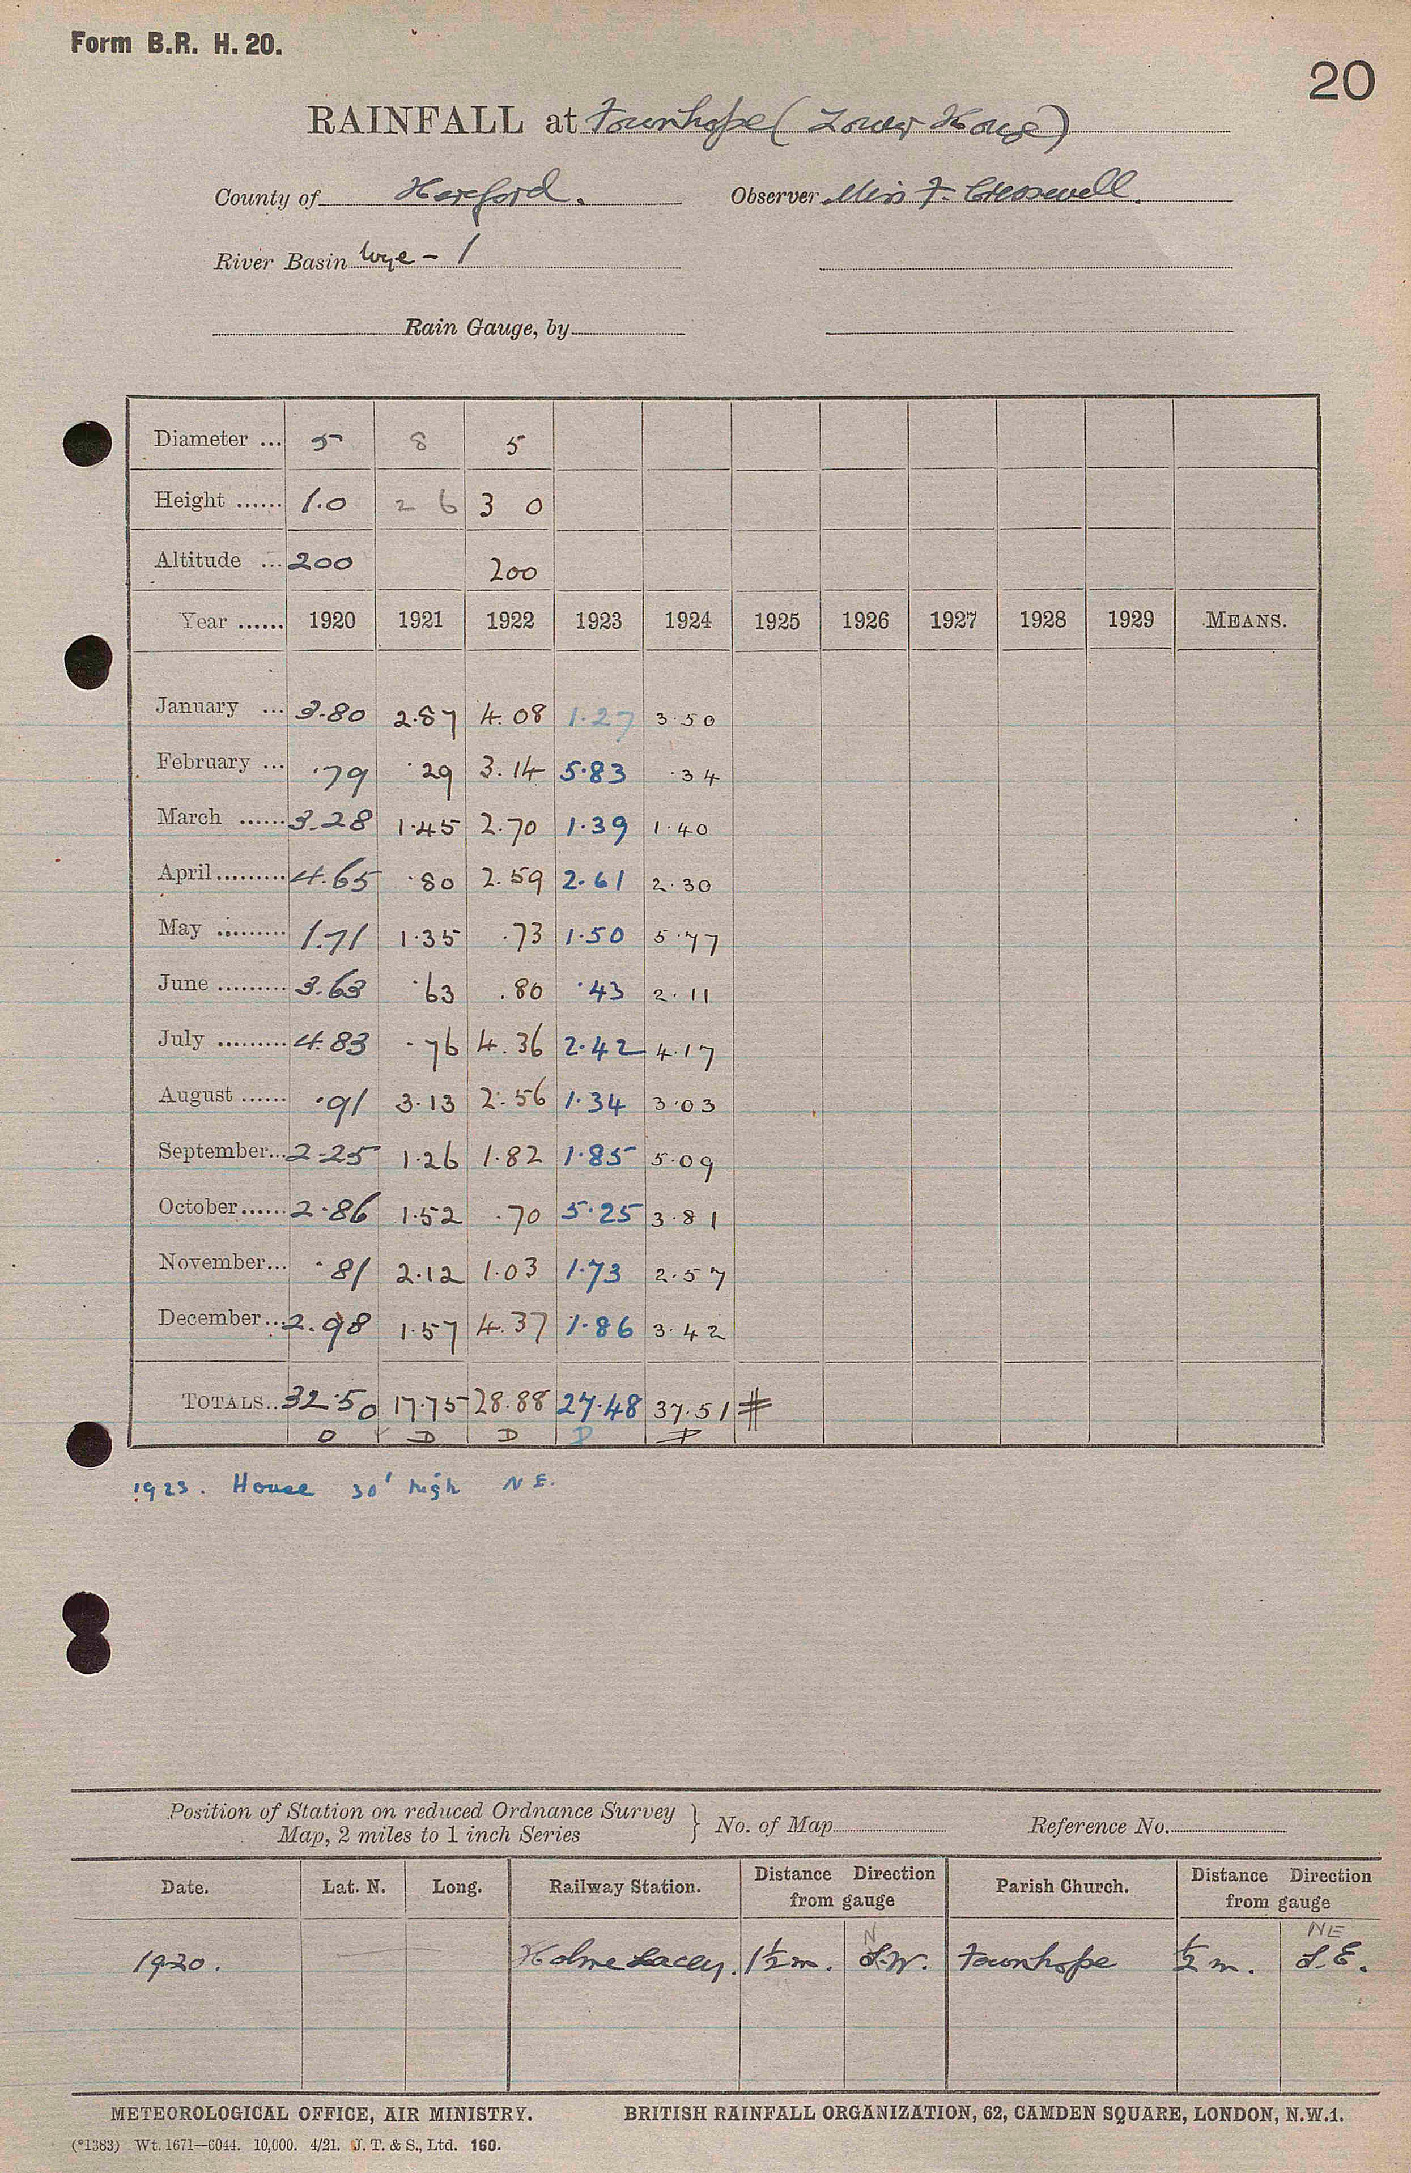 Form B.R. H. 20.
20
RAINFALL at Fownhope (Lower House)
County of Hereford. Observer Miss F. Cresswell.
River Basin Wye - 1
Rain Gauge, by
Diameter ... 5 8 5
Height ...... 1.0 2 6 3 0
Altitude ... 200 200
Year ...... 1920 1921 1922 1923 1924 1925 1926 1927 1928 1929 MEANS.
January ... 3.80 2.87 4.08 1.27 3.50
February ... .79 .29 3.14 5.83 .34
March ...... 3.28 1.45 2.70 1.39 1.40
April ......... 4.65 .80 2.59 2.61 2.30
May ......... 1.71 1.35 .73 1.50 5.77
June ......... 3.63 .63 .80 .43 2.11
July ......... 4.83 .76 4.36 2.42 4.17
August ...... .91 3.13 2.56 1.34 3.03
September... 2.25 1.26 1.82 1.85 5.09
October...... 2.86 1.52 .70 5.25 3.81
November... .81 2.12 1.03 1.73 2.57
December... 2.98 1.57 4.37 1.86 3.42
TOTALS.. 32.50 17.75 28.88 27.48 37.51 #
D D D D D
1923. House 30' high NE.
Position of Station on reduced Ordnance Survey
Map, 2 miles to 1 inch Series } No. of Map Reference No.
Date. Lat. N. Long. Railway Station. Distance Direction from gauge Parish Church. Distance Direction from gauge
N NE
1920. Holme Lacey. 1½ m. S.W. Fownhope ½ m. S.E.
METEOROLOGICAL OFFICE, AIR MINISTRY. BRITISH RAINFALL ORGANIZATION, 62, CAMDEN SQUARE, LONDON, N.W.1.
(*1383) Wt. 1671—6044. 10,000. 4/21. J. T. & S., Ltd. 160.